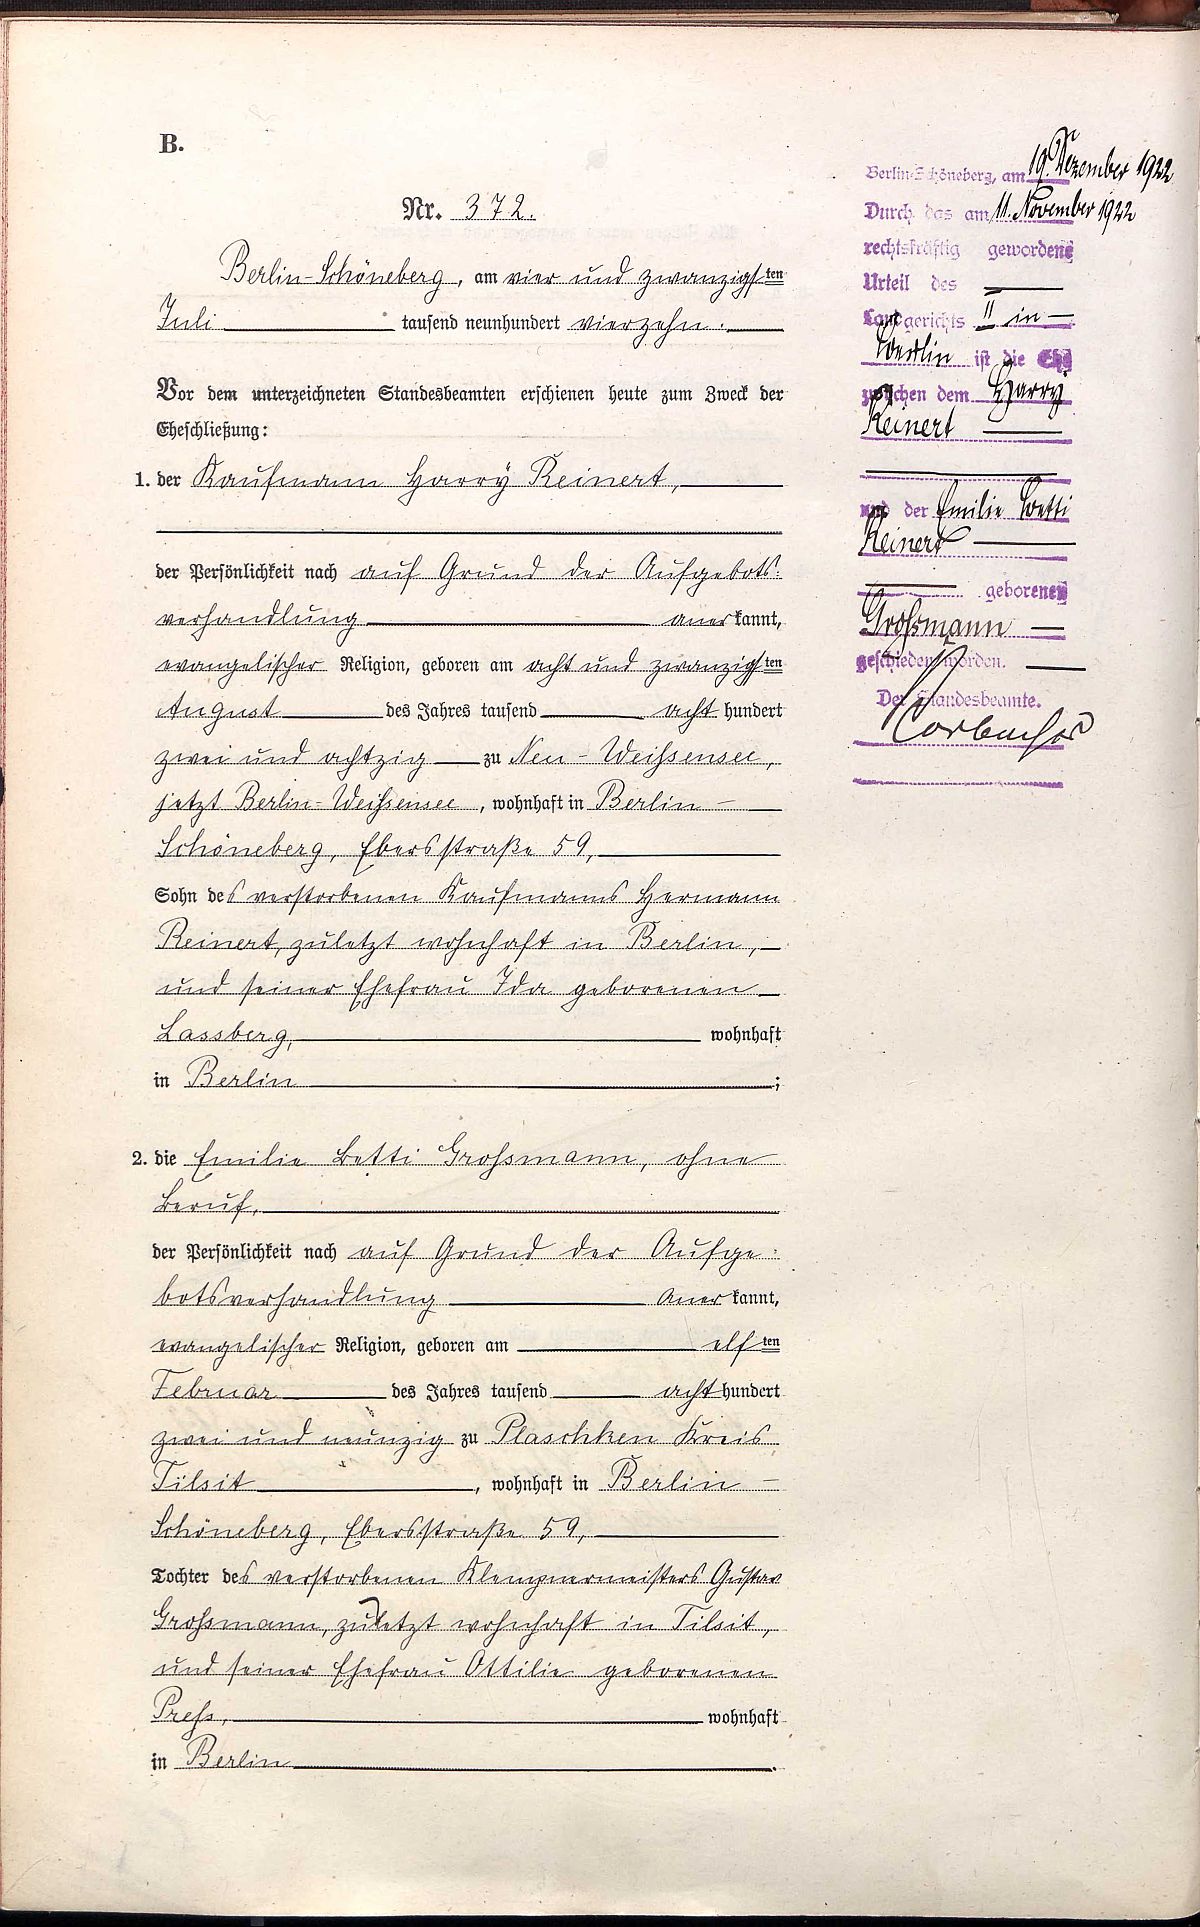 B.
Nr. 372.
Berlin-Schöneberg, am vier und zwanzigsten
Juli tausend neunhundert vierzehn.
Vor dem unterzeichneten Standesbeamten erschienen heute zum Zweck der
Eheschließung:
1. der Kaufmann Harry Reinert,
der Persönlichkeit nach auf Grund der Aufgebots-
verhandlung anerkannt,
evangelischer Religion, geboren am acht und zwanzigsten
August des Jahres tausend acht hundert
zwei und achtzig zu Neu-Weißensee,
jetzt Berlin-Weißensee, wohnhaft in Berlin-
Schöneberg, Ebersstraße 59,
Sohn des verstorbenen Kaufmanns Hermann
Reinert, zuletzt wohnhaft in Berlin,
und seiner Ehefrau Ida geborenen
Lassberg, wohnhaft
in Berlin;
2. die Emilie Betti Großmann, ohne
Beruf,
der Persönlichkeit nach auf Grund der Aufge-
botsverhandlung anerkannt,
evangelischer Religion, geboren am elften
Februar des Jahres tausend acht hundert
zwei und neunzig zu Plaschken Kreis
Tilsit, wohnhaft in Berlin-
Schöneberg, Ebersstraße 59,
Tochter des verstorbenen Klempnermeisters Gustav
Großmann, zuletzt wohnhaft in Tilsit,
und seiner Ehefrau Ottilie geborenen
Preß, wohnhaft
in Berlin.
Berlin-Schöneberg, am 19. Dezember 1922
Durch das am 11. November 1922
rechtskräftig gewordene
Urteil des
Landgerichts II in
Berlin ist die Ehe
zwischen dem Harry
Reinert
und der Emilie Betti
Reinert
geborenen
Großmann
geschieden worden.
Der Standesbeamte.